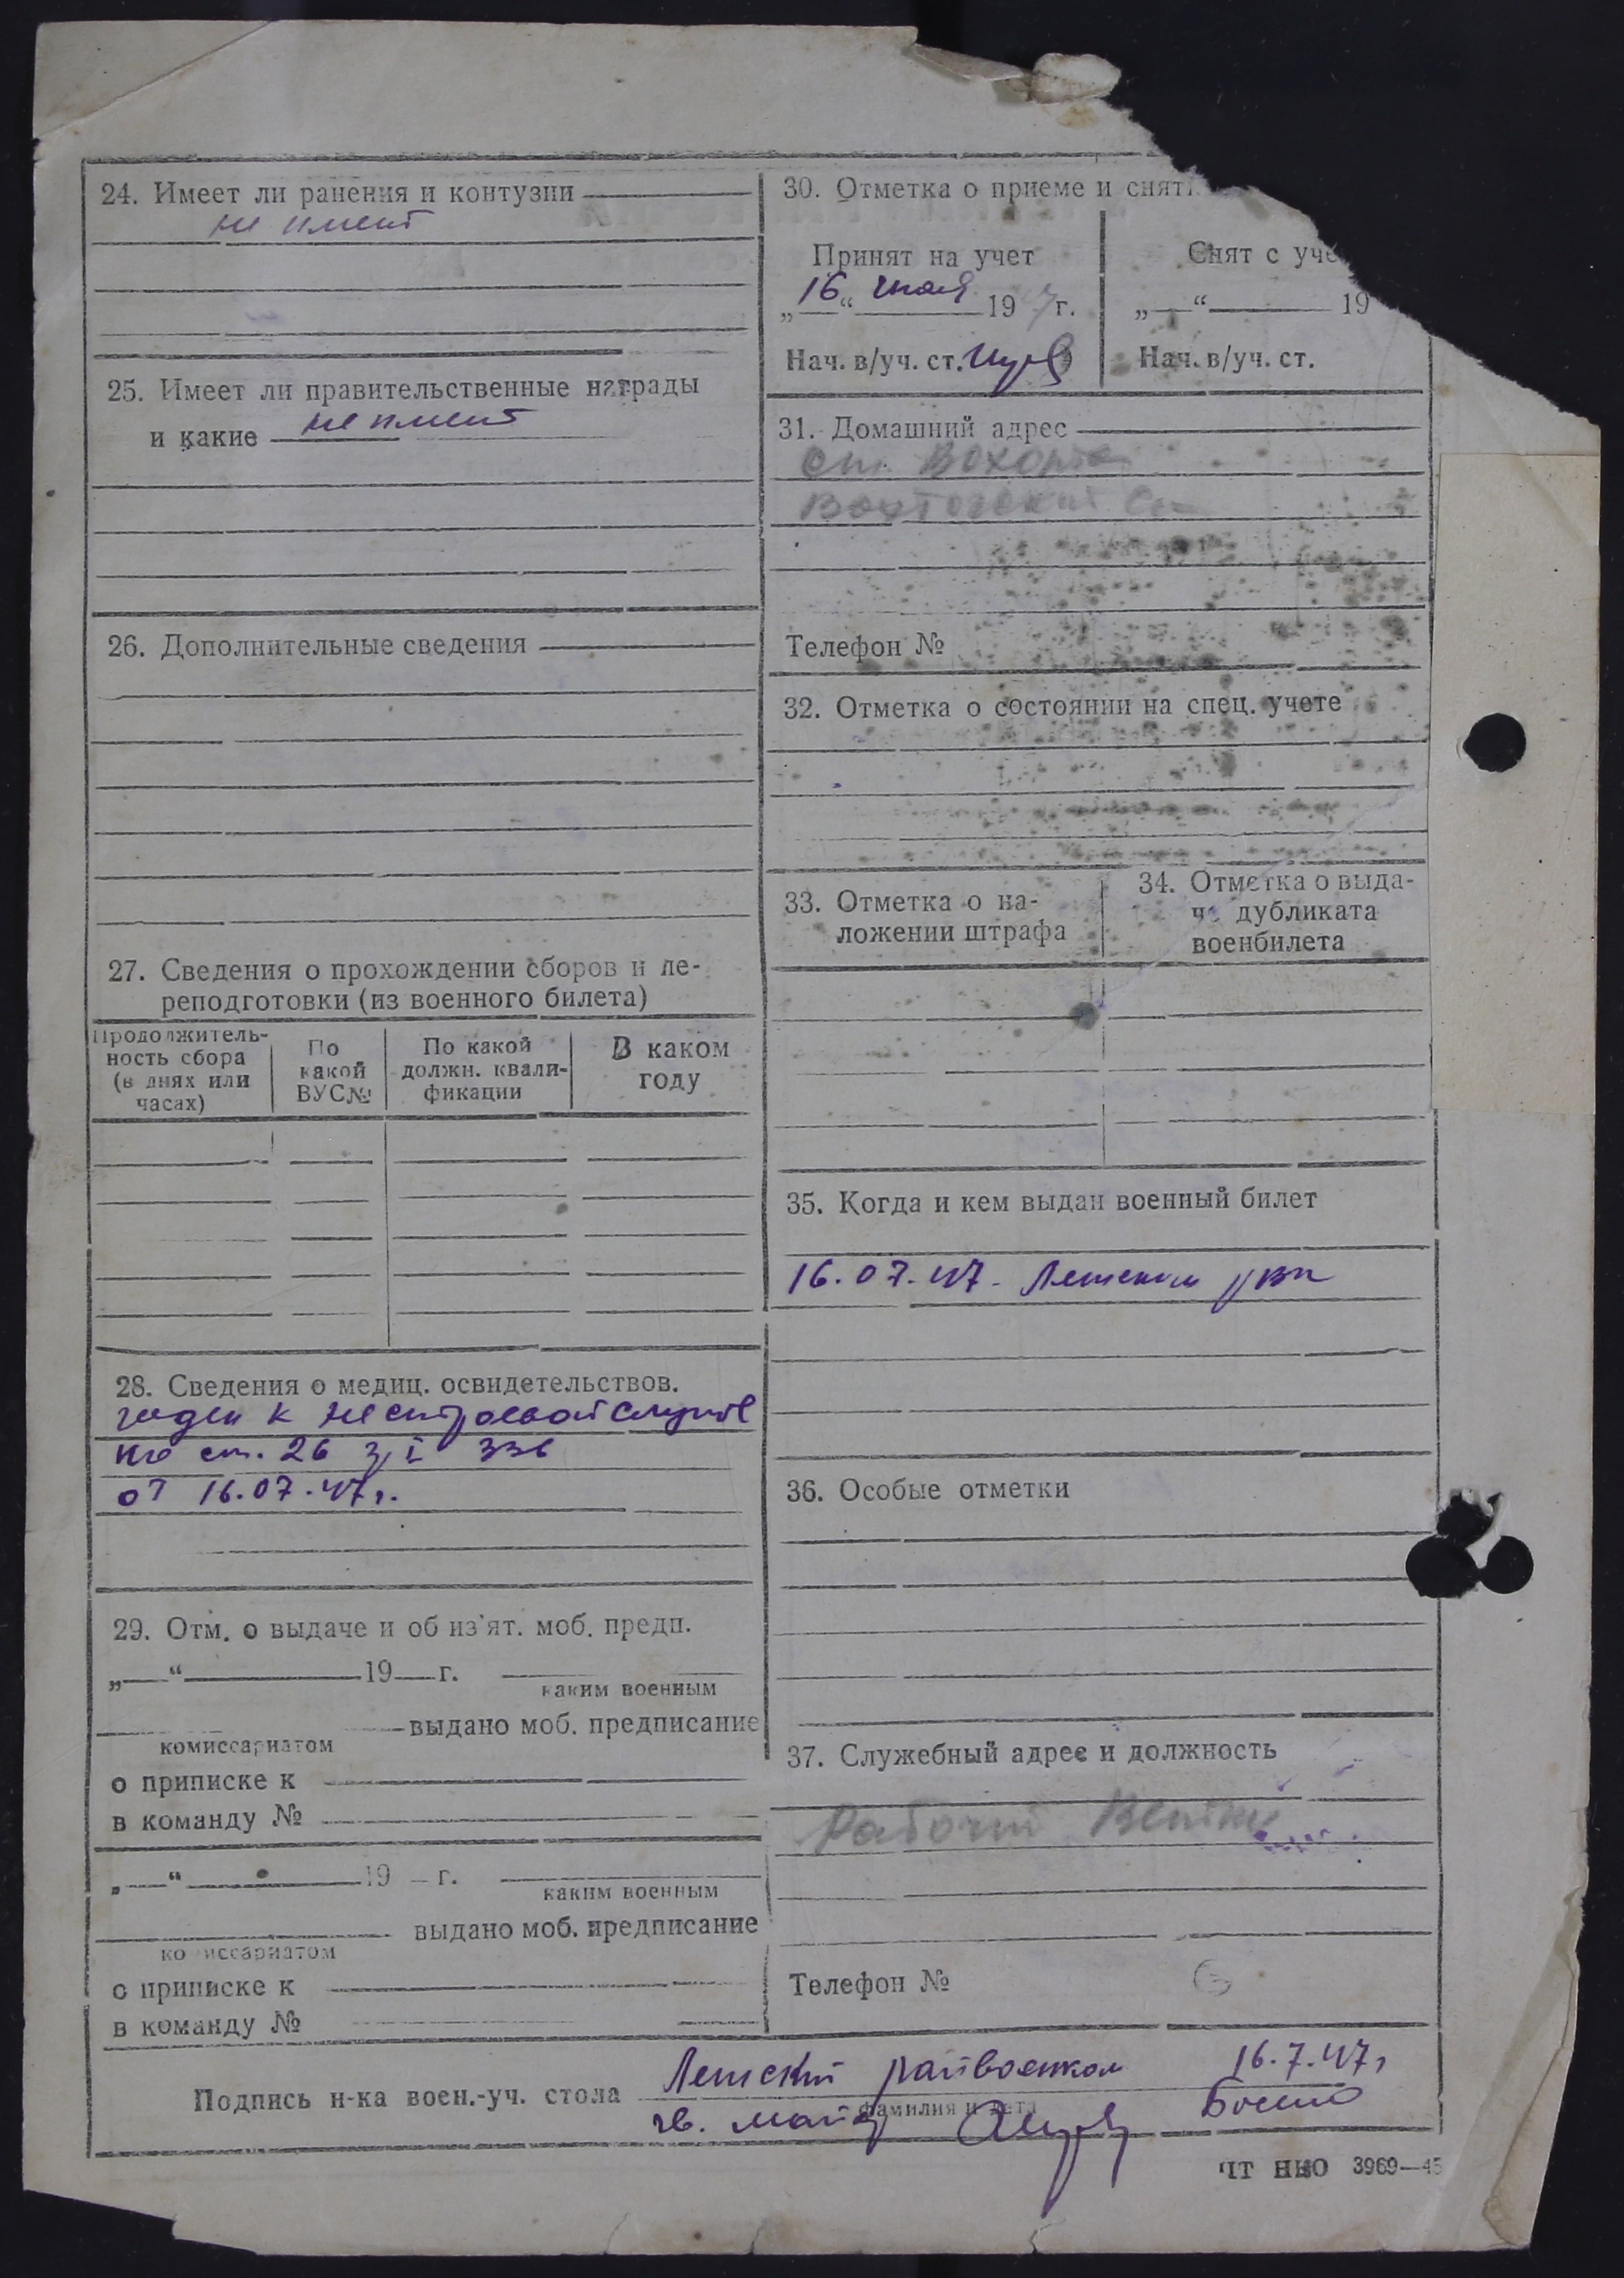 24. Имеет ли ранения и контузии
не имеет
25. Имеет ли правительственные награды
и какие не имеет
26. Дополнительные сведения
27. Сведения о прохождении сборов и пе-
реподготовки (из военного билета)
Продолжитель-
ность сбора
(в днях или
часах)
По
какой
ВУС№
По какой
должн. квали-
фикации
В каком
году
28. Сведения о медиц. освидетельствов.
годен к нестроевой службе
по ст. 26 гр I 336
от 16.07.47г.
29. Отм. о выдаче и об из'ят. моб. предп.
„—“ 19 г.
каким военным
выдано моб. предписание
комиссариатом
о приписке к
в команду №
„—“ 19 г.
каким военным
выдано моб. предписание
комиссариатом
о приписке к
в команду №
30. Отметка о приеме и сняти
Принят на учет
„16“ июля 1947 г.
Нач. в/уч. ст.
Снят с уче
„—“ 19
Нач. в/уч. ст.
31. Домашний адрес
ст. Вохтога
Вохтогский
Телефон №
32. Отметка о состоянии на спец. учете
33. Отметка о на-
ложении штрафа
34. Отметка о выда-
че дубликата
военбилета
35. Когда и кем выдан военный билет
16.07.47. РВК
36. Особые отметки
37. Служебный адрес и должность
Рабочий
Телефон №
Подпись н-ка воен.-уч. стола райвоенком 16.7.47г
фамилия и дата
гв. майор
ЧТ НКО 3969—45